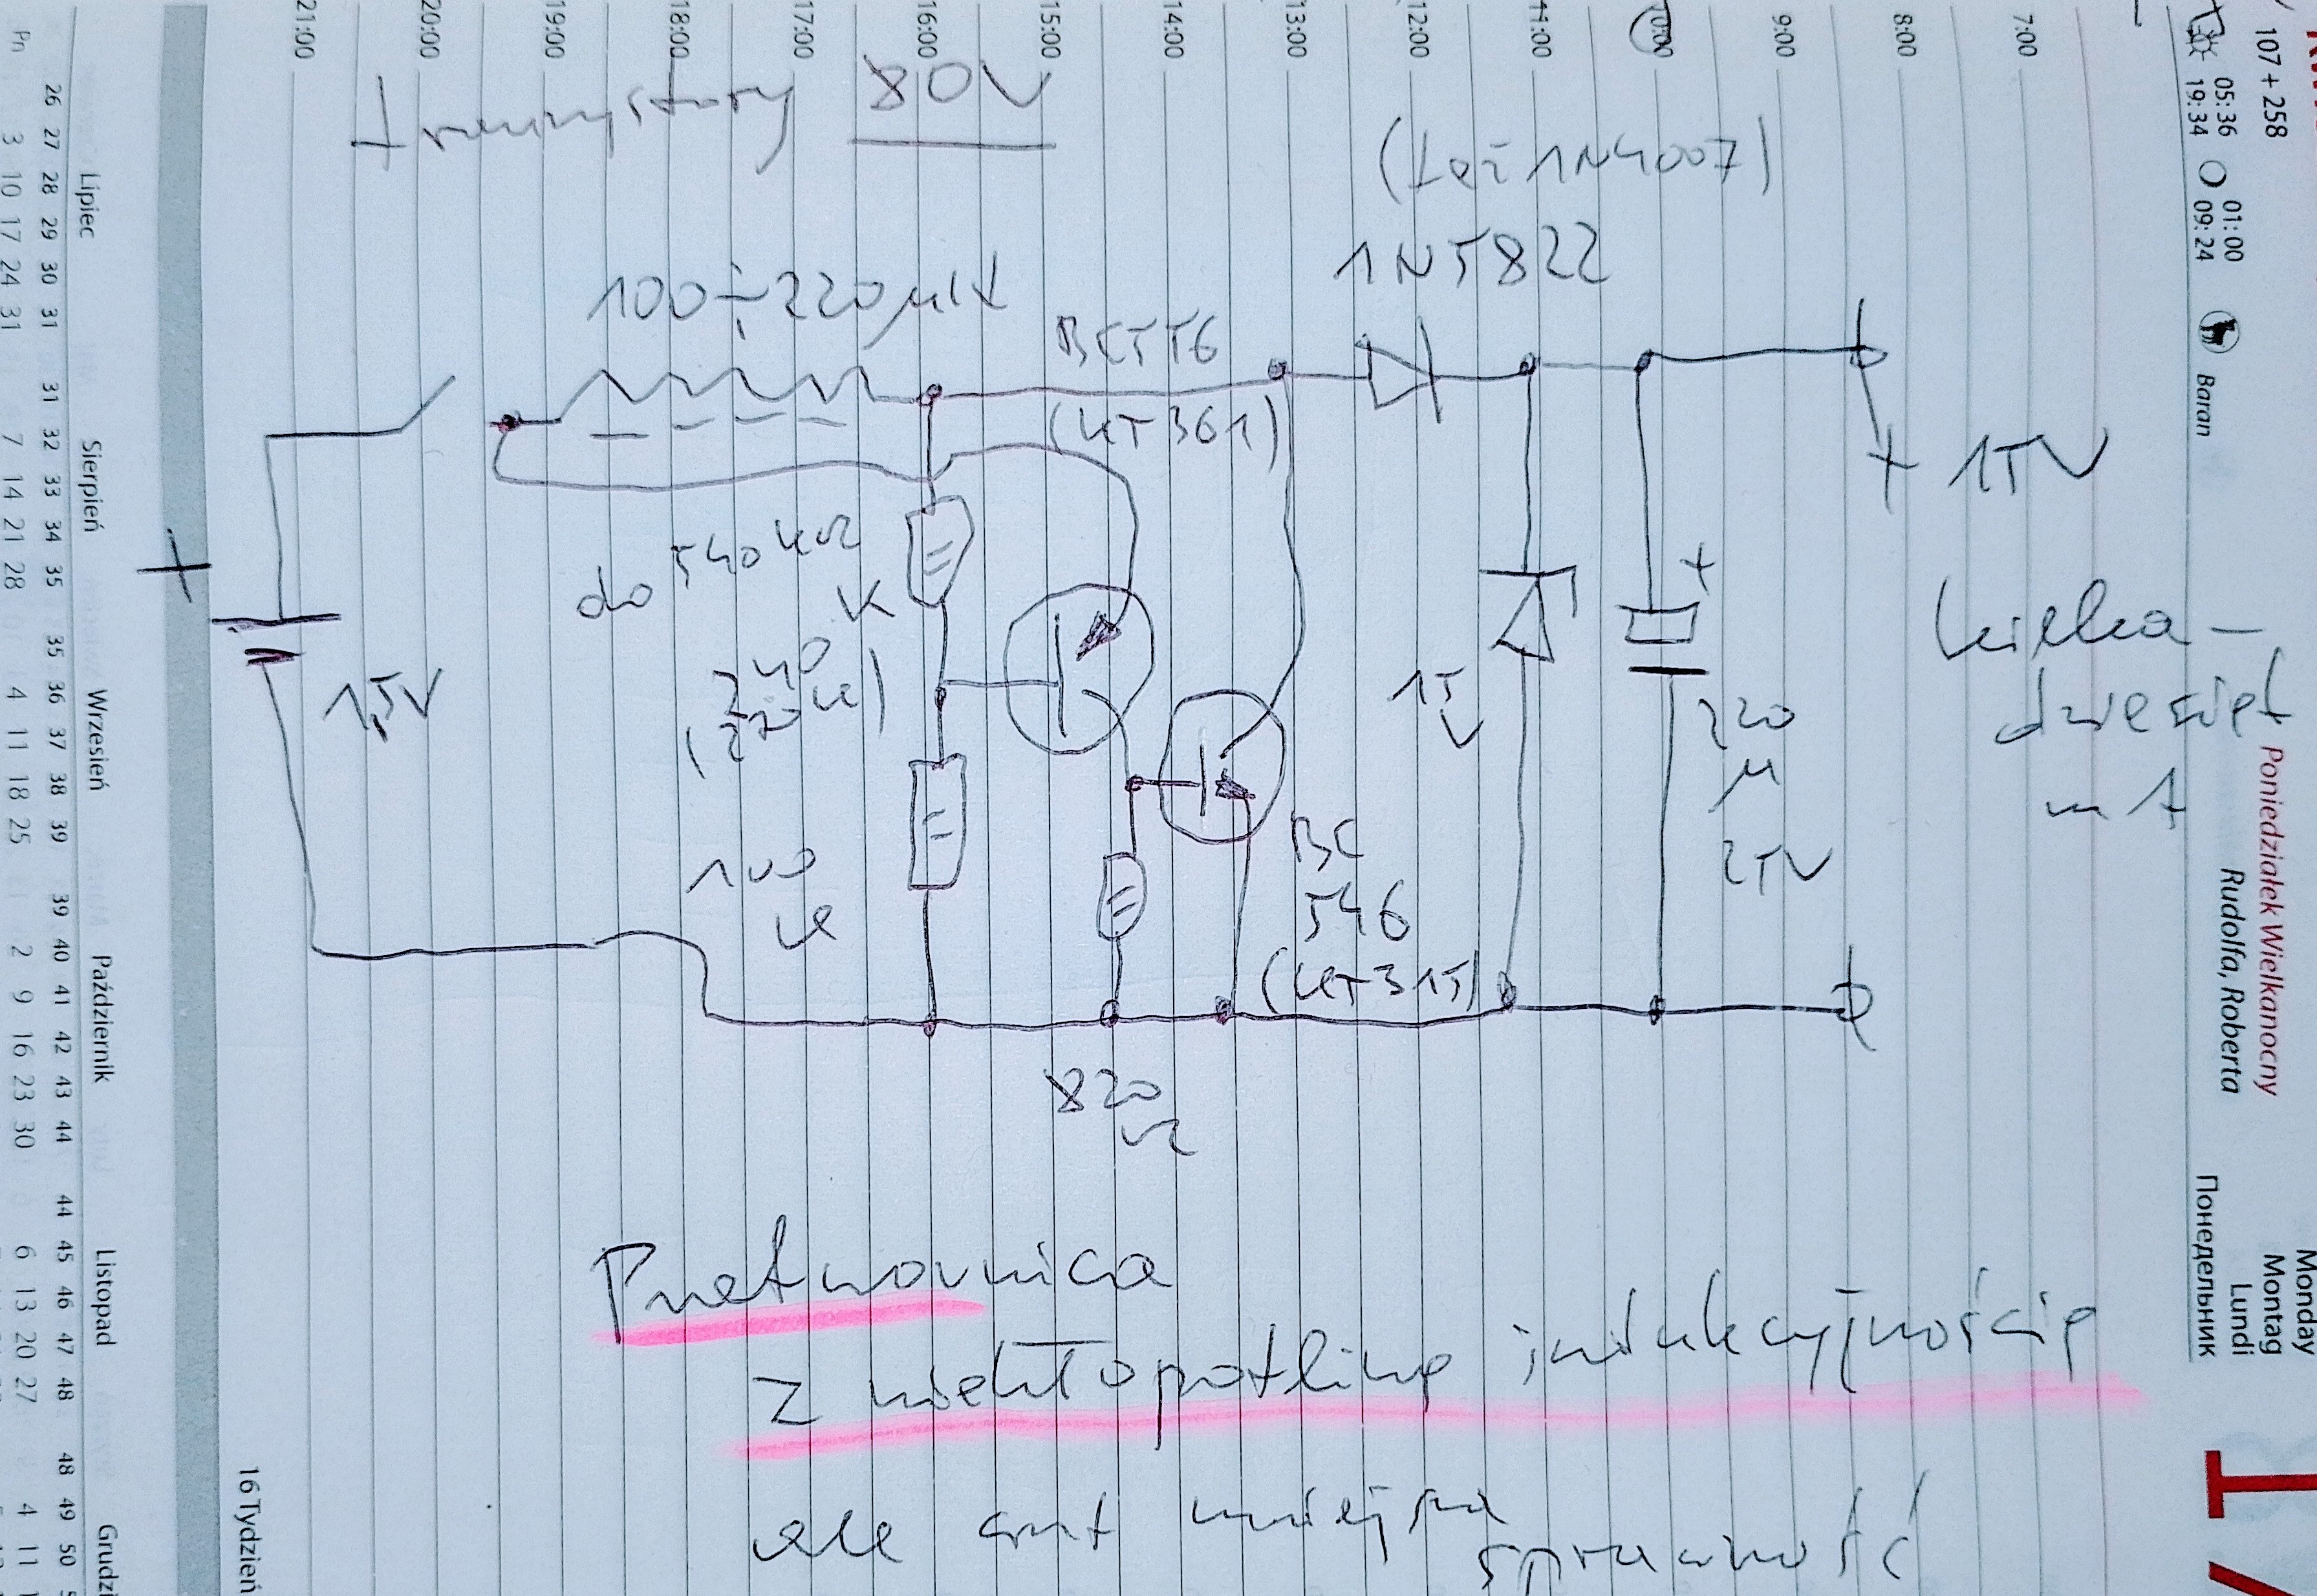 Tranzystory 80V
(też 1N4007)
1N5822
100÷220µH
BC556
(KT361)
+ 15V
do 540 kΩ
K
240
(220k)
1,5V
+
+
15
V
220
µ
25V
kilka-
dziesiąt
mA
100
k
BC
546
(KT315)
820
Ω
Przetwornica
z niekłopotliwą indukcyjnością
ale jest mniejsza
sprawność
21:00
20:00
19:00
18:00
17:00
16:00
15:00
14:00
13:00
12:00
11:00
9:00
8:00
7:00
107 + 258
05:36
19:34
01:00
09:24
Baran
Poniedziałek Wielkanocny
Rudolfa, Roberta
Monday
Montag
Lundi
Понедельник
16 Tydzień
Pn
Lipiec
26 27 28 29 30 31
3 10 17 24 31
Sierpień
31 32 33 34 35
7 14 21 28
Wrzesień
35 36 37 38 39
4 11 18 25
Październik
39 40 41 42 43 44
2 9 16 23 30
Listopad
44 45 46 47 48
6 13 20 27
Grudzi
48 49 50
4 11